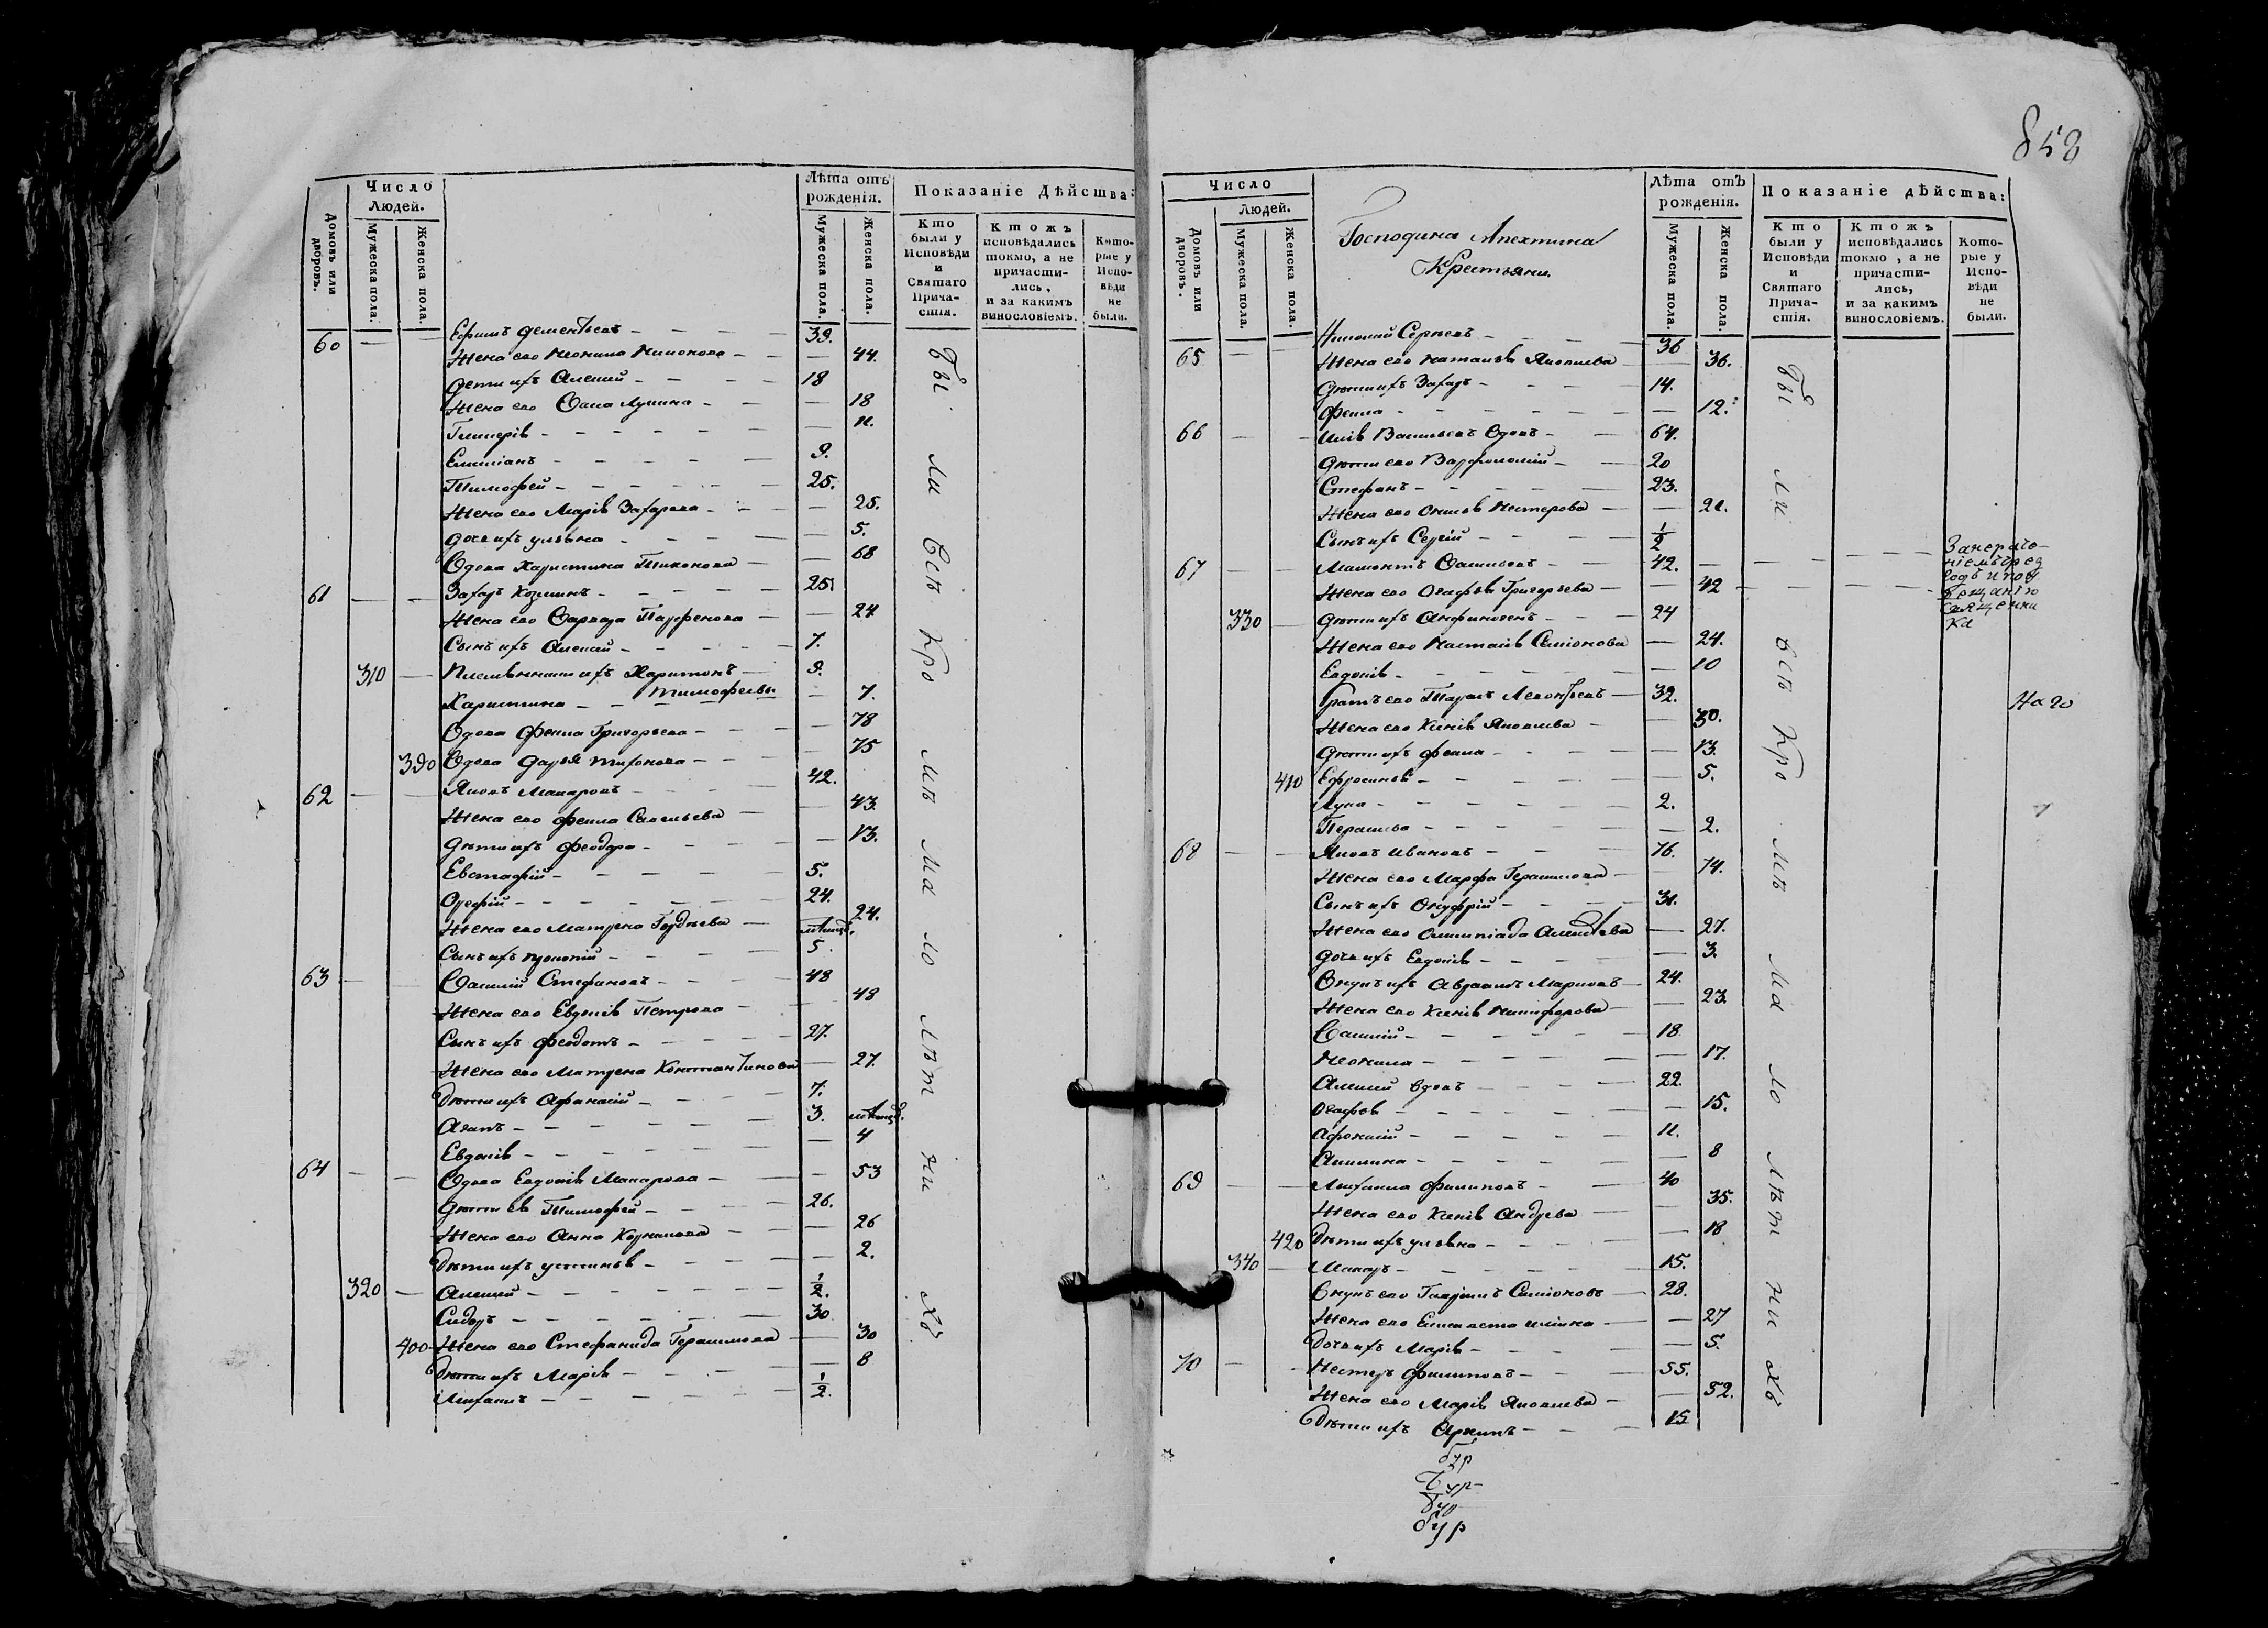 858
Число
Людей.
Домовъ или дворовъ.
Мужеска пола.
Женска пола.
Лѣта отъ рожденія.
Мужеска пола.
Женска пола.
Показаніе Дѣйства:
Кто были у Исповѣди и Святаго Прича-стія.
Ктожъ исповѣдались токмо, а не причасти-лись, и за какимъ винословіемъ.
Кото-рые у Испо-вѣди не были.
60 Ефимъ Дементьевъ 39.
Жена его Неонила 44.
Дети ихъ Алексий 18
Жена его 18
Гликерія 11.
Емилианъ 9.
Тимофей 25.
Жена его Марія Захарова 25.
Дочь ихъ Ульяна 5.
Вдова Харитина Тихонова 68
61 Захаръ Козминъ 25
Жена его Варвара Парфенова 24
Сынъ ихъ Алексий 7.
310 Племянники ихъ Харитонъ 9.
Тимофеевы
Харитина 7.
Вдова Фекла Григорьева 78
390 Вдова Дарья 75
62 Яковъ Макаровъ 42.
Жена его Фекла Савельева 43.
Дѣти ихъ Феодора 13.
Евстафій 5.
24.
Жена его Матрена Гордѣева 24.
мѣсяц.
Сынъ ихъ Прокопій 5.
63 Василій Стефановъ 48
Жена его Евдокія Петрова 48
Сынъ ихъ Феодотъ 27.
Жена его Матрена Константинова 27.
Дѣти ихъ Афанасій 7.
Агапъ 3. мѣсяц.
Евдокія 4
64 Вдова Евдокія Макарова 53
Дѣти ея Тимофей 26.
Жена его Анна Корнилова 26
Дѣти ихъ Устинья 2.
320 Алексий 1/2.
Сидоръ 30
400 Жена его Стефанида Герасимова 30
Дѣти ихъ Марія 8
Михаилъ 1/2.
Бы ли Всѣ Кро мѣ ма ло лѣт ни хъ
Число
Людей.
Домовъ или дворовъ.
Мужеска пола.
Женска пола.
Господина Апехтина
Крестьяни.
Лѣта отъ рожденія.
Мужеска пола.
Женска пола.
Показаніе дѣйства:
Кто были у Исповѣди и Святаго Прича-стія.
Ктожъ исповѣдались токмо, а не причасти-лись, и за какимъ винословіемъ.
Кото-рые у Испо-вѣди не были.
65 Николай Сергѣевъ 36
Жена его Наталья Яковлева 36.
Дѣти ихъ Захаръ 14.
Фекла 12.
66 Илія Васильевъ Вдовъ 64.
Дѣти его Варфоломій 20
Стефанъ 23.
Жена его Нестерова 21.
Сынъ ихъ Сергій 1/2
67 42.
Жена его Агафья Григорьева 42
330 Дѣти ихъ Анфиногенъ 24
Жена его Настасія Семіонова 24.
Евдокія 10
Братъ его Тарасъ Леонтьевъ 32.
Жена его Ксенія Яковлева 30.
Дѣти ихъ Фекла 13.
410 Ефросинья 5.
Лука 2.
2.
68 Яковъ Ивановъ 76.
Жена его Марфа Герасимова 74.
Сынъ ихъ Онуфрій 31.
Жена его Олимпіада Алексѣева 27.
Дочь ихъ Евдокія 3.
Внукъ ихъ Авраамъ Марковъ 24.
Жена его Ксенія Никифорова 23.
Василій 18
Неонила 17.
Алексий вдовъ 22.
Агафья 15.
Афонасій 11.
Акилина 8
69 Михаила Филиповъ 40
Жена его Ксенія Андрѣева 35.
420 Дѣти ихъ Ульяна 18
340 Макаръ 15.
Внукъ его Гаврилъ Семіоновъ 28.
Жена его Елисавета Ильина 27
Дочь ихъ Марія 5.
70 Нестеръ Филиповъ 55.
Жена его Марія Яковлева 52.
Дѣти ихъ Архипъ 15
Бы ли всѣ Кро мѣ ма ло лѣт ни хъ